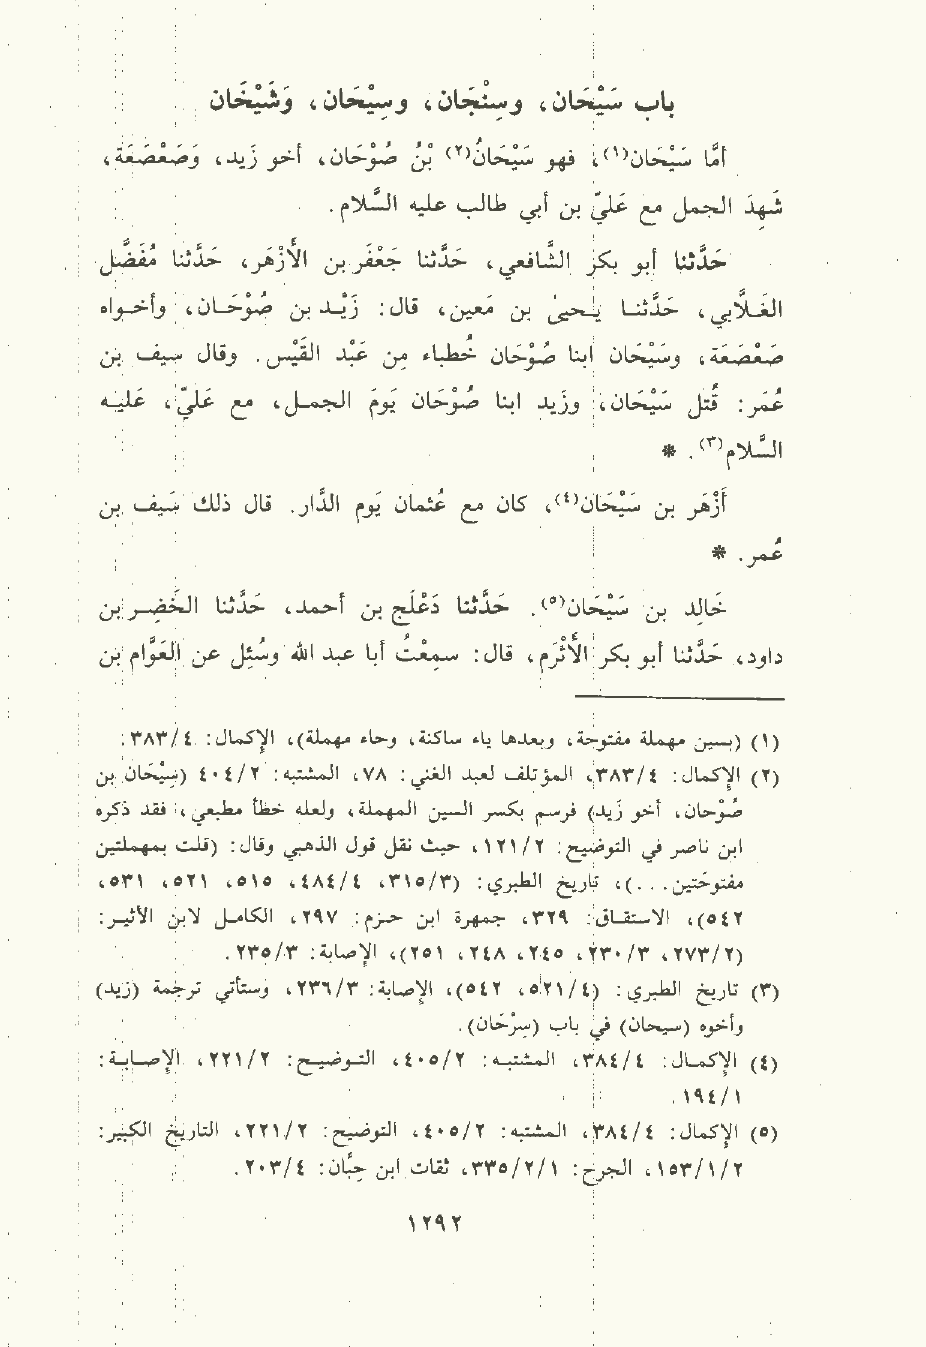 باب سَيْحَان، وسِنْجَان، وسِيْحَان، وَشَيْخَان
أمَّا سَيْحَان(١)، فهو سَيْحَانُ(٢) بْنُ صُوْحَان، أخو زَيد، وَصَعْصَعَة،
شَهِدَ الجمل مع عَليّ بن أبي طالب عليه السَّلام.
حَدَّثنا أبو بكر الشَّافعي، حَدَّثنا جَعْفَر بن الأَزْهَر، حَدَّثنا مُفَضَّل
الغَلَّابي، حَدَّثنا يَحيىٰ بن مَعين، قال: زَيْد بن صُوْحَان، وأخواه
صَعْصَعَة، وسَيْحَان ابنا صُوْحَان خُطباء من عَبْد القَيْس. وقال سيف بن
عُمَر: قُتل سَيْحَان، وزَيد ابنا صُوْحَان يَومَ الجمل، مع عَليّ، عَليه
السَّلام(٣). *
أَزْهَر بن سَيْحَان(٤)، كان مع عُثمان يَوم الدَّار. قال ذلك سَيف بن
عُمر. *
خَالِد بن سَيْحَان(٥). حَدَّثنا دَعْلَج بن أحمد، حَدَّثنا الخَضِر بن
داود، حَدَّثنا أبو بكر الأَثْرَم، قال: سمِعْتُ أبا عبد الله وسُئِل عن العَوَّام بن
(١) (بسين مهملة مفتوحة، وبعدها ياء ساكنة، وحاء مهملة)، الإكمال: ٣٨٣/٤.
(٢) الإكمال: ٣٨٣/٤، المؤتلف لعبد الغني: ٧٨، المشتبه: ٤٠٤/٢ (سِيْحَان بن
صُوْحان، أخو زَيد) فرسم بكسر السين المهملة، ولعله خطأ مطبعي، فقد ذكره
ابن ناصر في التوضيح: ١٢١/٢، حيث نقل قول الذهبي وقال: (قلت بمهملتين
مفتوحَتين...)، تاريخ الطبري: (٣١٥/٣، ٤٨٤/٤، ٥١٥، ٥٢١، ٥٣١،
٥٤٢)، الاستقاق: ٣٢٩، جمهرة ابن حزم: ٢٩٧، الكامل لابن الأثير:
(٢٧٣/٢، ٢٣٠/٣، ٢٤٥، ٢٤٨، ٢٥١)، الإصابة: ٢٣٥/٣.
(٣) تاريخ الطبري: (٥٢١/٤، ٥٤٢)، الإصابة: ٢٣٦/٣، وستأتي ترجمة (زيد)
وأخوه (سيحان) في باب (سِرْحَان).
(٤) الإكمال: ٣٨٤/٤، المشتبه: ٤٠٥/٢، التوضيح: ٢٢١/٢، الإصابة:
١٩٤/١.
(٥) الإكمال: ٣٨٤/٤، المشتبه: ٤٠٥/٢، التوضيح: ٢٢١/٢، التاريخ الكبير:
١٥٣/١/٢، الجرح: ٣٣٥/٢/١، ثقات ابن حِبَّان: ٢٠٣/٤.
١٢٩٢